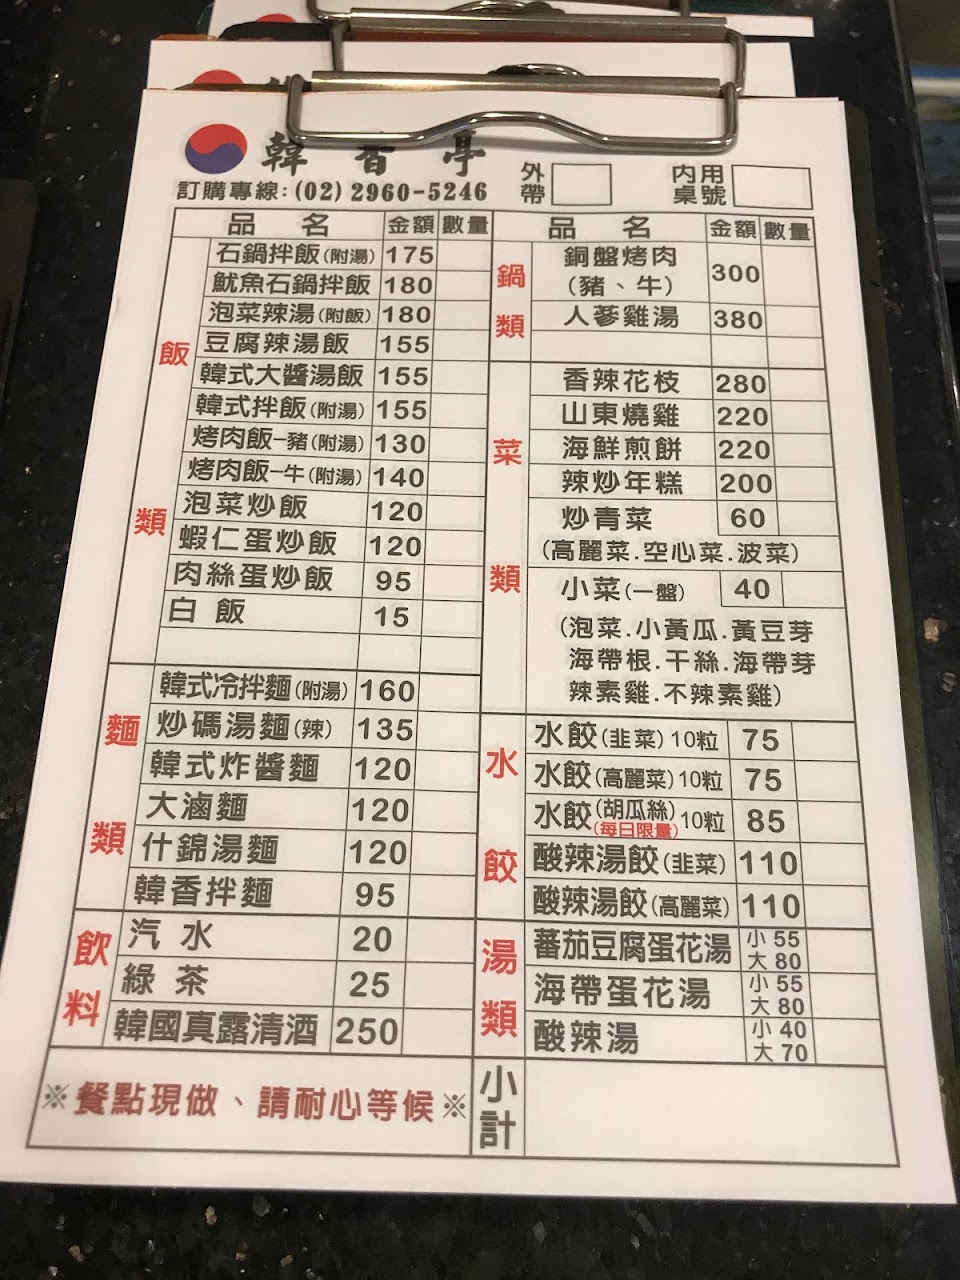 韓香亭
訂購專線:(02)2960-5246
外帶
內用桌號
品名 金額 數量
飯類
石鍋拌飯(附湯) 175
魷魚石鍋拌飯 180
泡菜辣湯(附飯) 180
豆腐辣湯飯 155
韓式大醬湯飯 155
韓式拌飯(附湯) 155
烤肉飯-豬(附湯) 130
烤肉飯-牛(附湯) 140
泡菜炒飯 120
蝦仁蛋炒飯 120
肉絲蛋炒飯 95
白飯 15
麵類
韓式冷拌麵(附湯) 160
炒碼湯麵(辣) 135
韓式炸醬麵 120
大滷麵 120
什錦湯麵 120
韓香拌麵 95
飲料
汽水 20
綠茶 25
韓國真露清酒 250
※餐點現做、請耐心等候※
品名 金額 數量
鍋類
銅盤烤肉
(豬、牛) 300
人蔘雞湯 380
菜類
香辣花枝 280
山東燒雞 220
海鮮煎餅 220
辣炒年糕 200
炒青菜 60
(高麗菜.空心菜.波菜)
小菜(一盤) 40
(泡菜.小黃瓜.黃豆芽
海帶根.干絲.海帶芽
辣素雞.不辣素雞)
水餃
水餃(韭菜)10粒 75
水餃(高麗菜)10粒 75
水餃(胡瓜絲)10粒 85
(每日限量)
酸辣湯餃(韭菜) 110
酸辣湯餃(高麗菜) 110
湯類
蕃茄豆腐蛋花湯 小 55
大 80
海帶蛋花湯 小 55
大 80
酸辣湯 小 40
大 70
小計